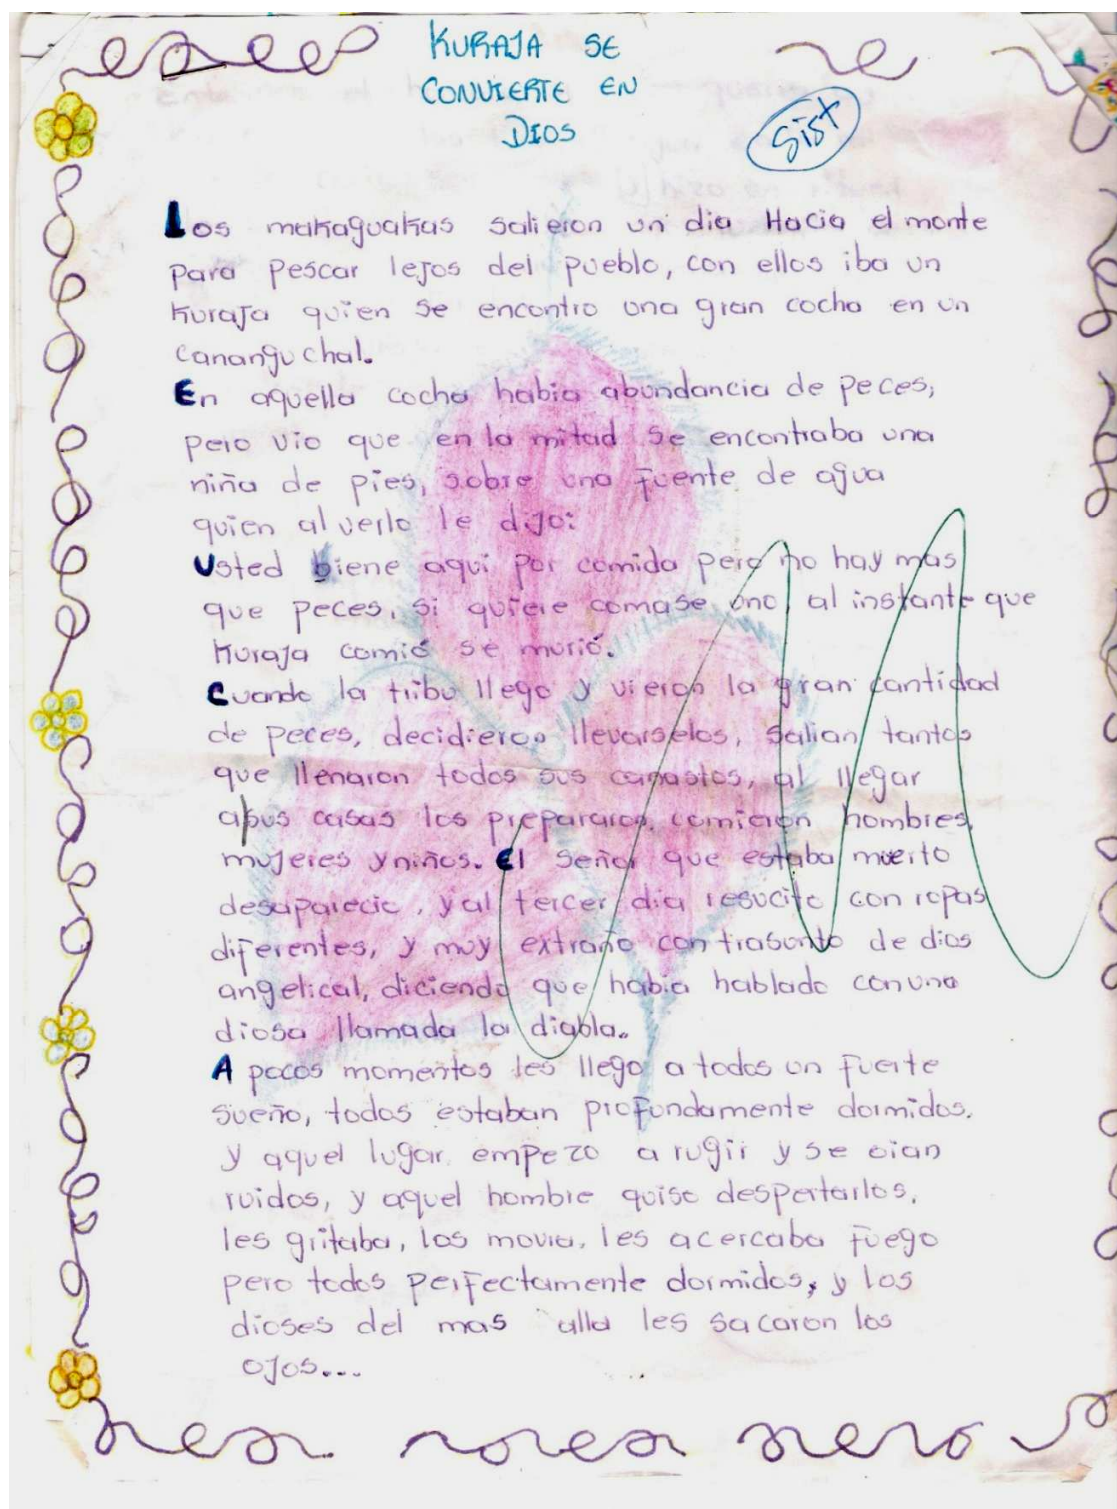 KURAJA SE
CONVIERTE EN
DIOS
Sist
Los makaguakas salieron un dia Hacia el monte
para pescar lejos del pueblo, con ellos iba un
kuraja quien se encontro una gran cocha en un
cananguchal.
En aquella cocha habia abundancia de peces,
pero vio que en la mitad se encontraba una
niña de pies, sobre una fuente de agua
quien al verlo le dijo:
Usted biene aqui por comida pero no hay mas
que peces, si quiere comase uno, al instante que
kuraja comió se murió.
Cuando la tribu llego y vieron la gran cantidad
de peces, decidieron llevarselos, salian tantos
que llenaron todos sus canastos, al llegar
a sus casas los prepararon, comieron hombres,
mujeres y niños. El señor que estaba muerto
desaparecio, y al tercer dia resucito con ropas
diferentes, y muy extraño con trasunto de dios
angelical, diciendo que habia hablado con una
diosa llamada la diabla.
A pocos momentos les llego a todos un fuerte
sueño, todos estaban profundamente dormidos.
y aquel lugar empezo a rugir y se oian
ruidos, y aquel hombre quiso despertarlos,
les gritaba, los movia, les acercaba fuego
pero todos perfectamente dormidos, y los
dioses del mas alla les sacaron los
ojos...